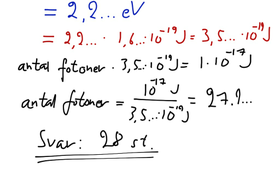 = 2,2... eV
= 2,2... · 1,6...·10⁻¹⁹ J = 3,5...·10⁻¹⁹ J
antal fotoner · 3,5...·10⁻¹⁹ J = 1·10⁻¹⁷ J
antal fotoner = 10⁻¹⁷ J / 3,5...·10⁻¹⁹ J = 27,9...
Svar: 28 st.